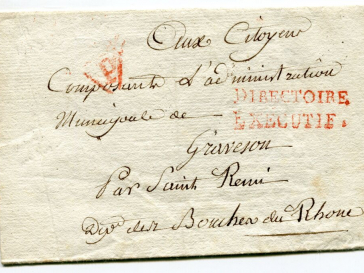 Aux Citoyens
Composants L'administration
DIRECTOIRE
Municipale de
EXECUTIF.
Graveson
Par Saint Remi
des Bouches du Rhone